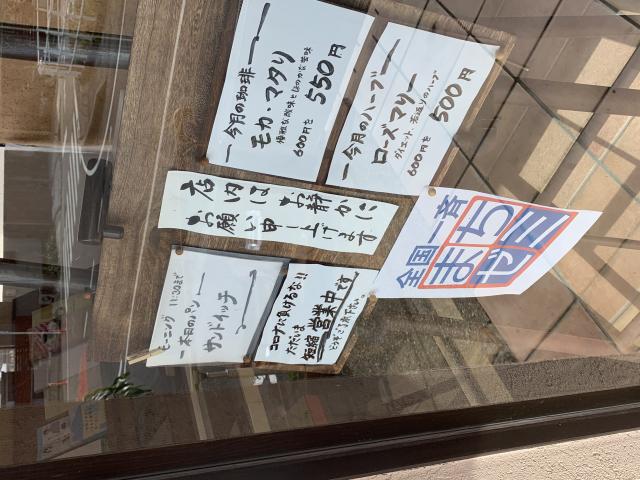 一今月の珈琲一
モカ・マタリ
繊細な酸味とほのかな苦味
600円を 550円
一今月のハーブ一
ローズマリー
ダイエット 若返りのハーブ
600円を 500円
店内はお静かに
お願い申し上げます
全国一斉
まち
ゼミ
モーニング 11:30まで
一本日のパン一
サンドイッチ
コロナに負けるな!!
ただいま
短縮営業中です